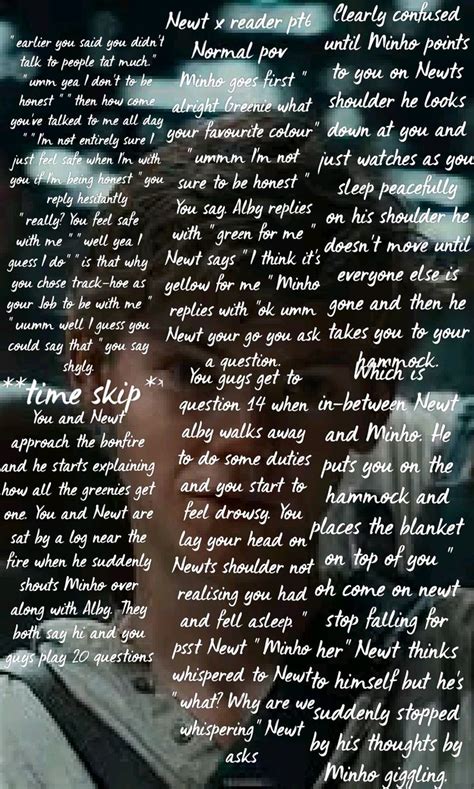 " earlier you said you didn't
talk to people tat much."
" umm yea I don't to be
honest " " then how come
you've talked to me all day
" " I'm not entirely sure I
just feel safe when I'm with
you if I'm being honest " you
reply hesitantly
" really? You feel safe
with me " " well yea I
guess I do" " is that why
you chose track-hoe as
your Job to be with me "
" uumm well I guess you
could say that " you say
shyly.
**time skip **
You and Newt
approach the bonfire
and he starts explaining
how all the greenies get
one. You and Newt are
sat by a log near the
fire when he suddenly
shouts Minho over
along with Alby. They
both say hi and you
guys play 20 questions
Newt x reader pt6
Normal pov
Minho goes first "
alright Greenie what
your favourite colour"
" ummm I'm not
sure to be honest "
You say. Alby replies
with "green for me "
Newt says " I think it's
yellow for me " Minho
replies with "ok umm
Newt your go you ask
a question.
You guys get to
question 14 when
alby walks away
to do some duties
and you start to
feel drowsy. You
lay your head on
Newts shoulder not
realising you had
and fell asleep. "
psst Newt " Minho
whispered to Newt
" what? Why are we
whispering" Newt
asks
Clearly confused
until Minho points
to you on Newts
shoulder he looks
down at you and
just watches as you
sleep peacefully
on his shoulder he
doesn't move until
everyone else is
gone and then he
takes you to your
hammock.
Which is
in-between Newt
and Minho. He
puts you on the
hammock and
places the blanket
on top of you "
oh come on newt
stop falling for
her" Newt thinks
to himself but he's
suddenly stopped
by his thoughts by
Minho giggling.